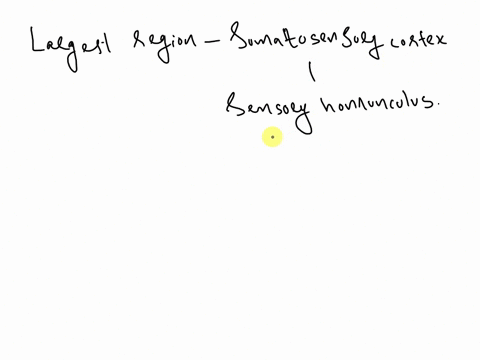 Largest region - Somatosensory cortex
Sensory homunculus.